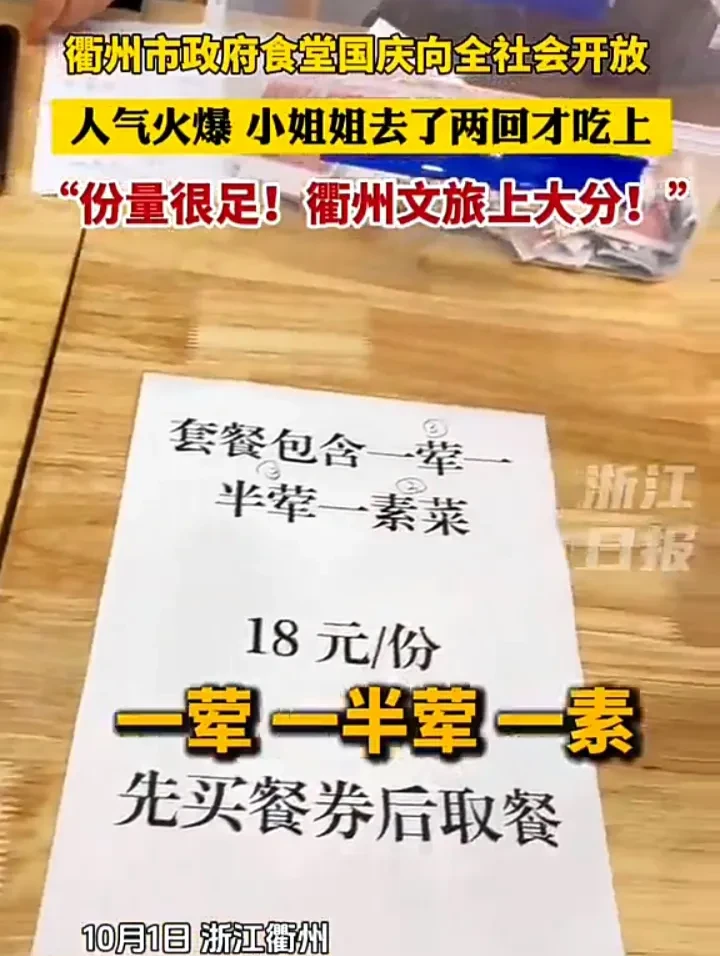 衢州市政府食堂国庆向全社会开放
人气火爆 小姐姐去了两回才吃上
“份量很足！衢州文旅上大分！”
套餐包含一荤一
半荤一素菜
浙江
日报
18 元/份
一荤 一半荤 一素
先买餐券后取餐
10月1日 浙江衢州